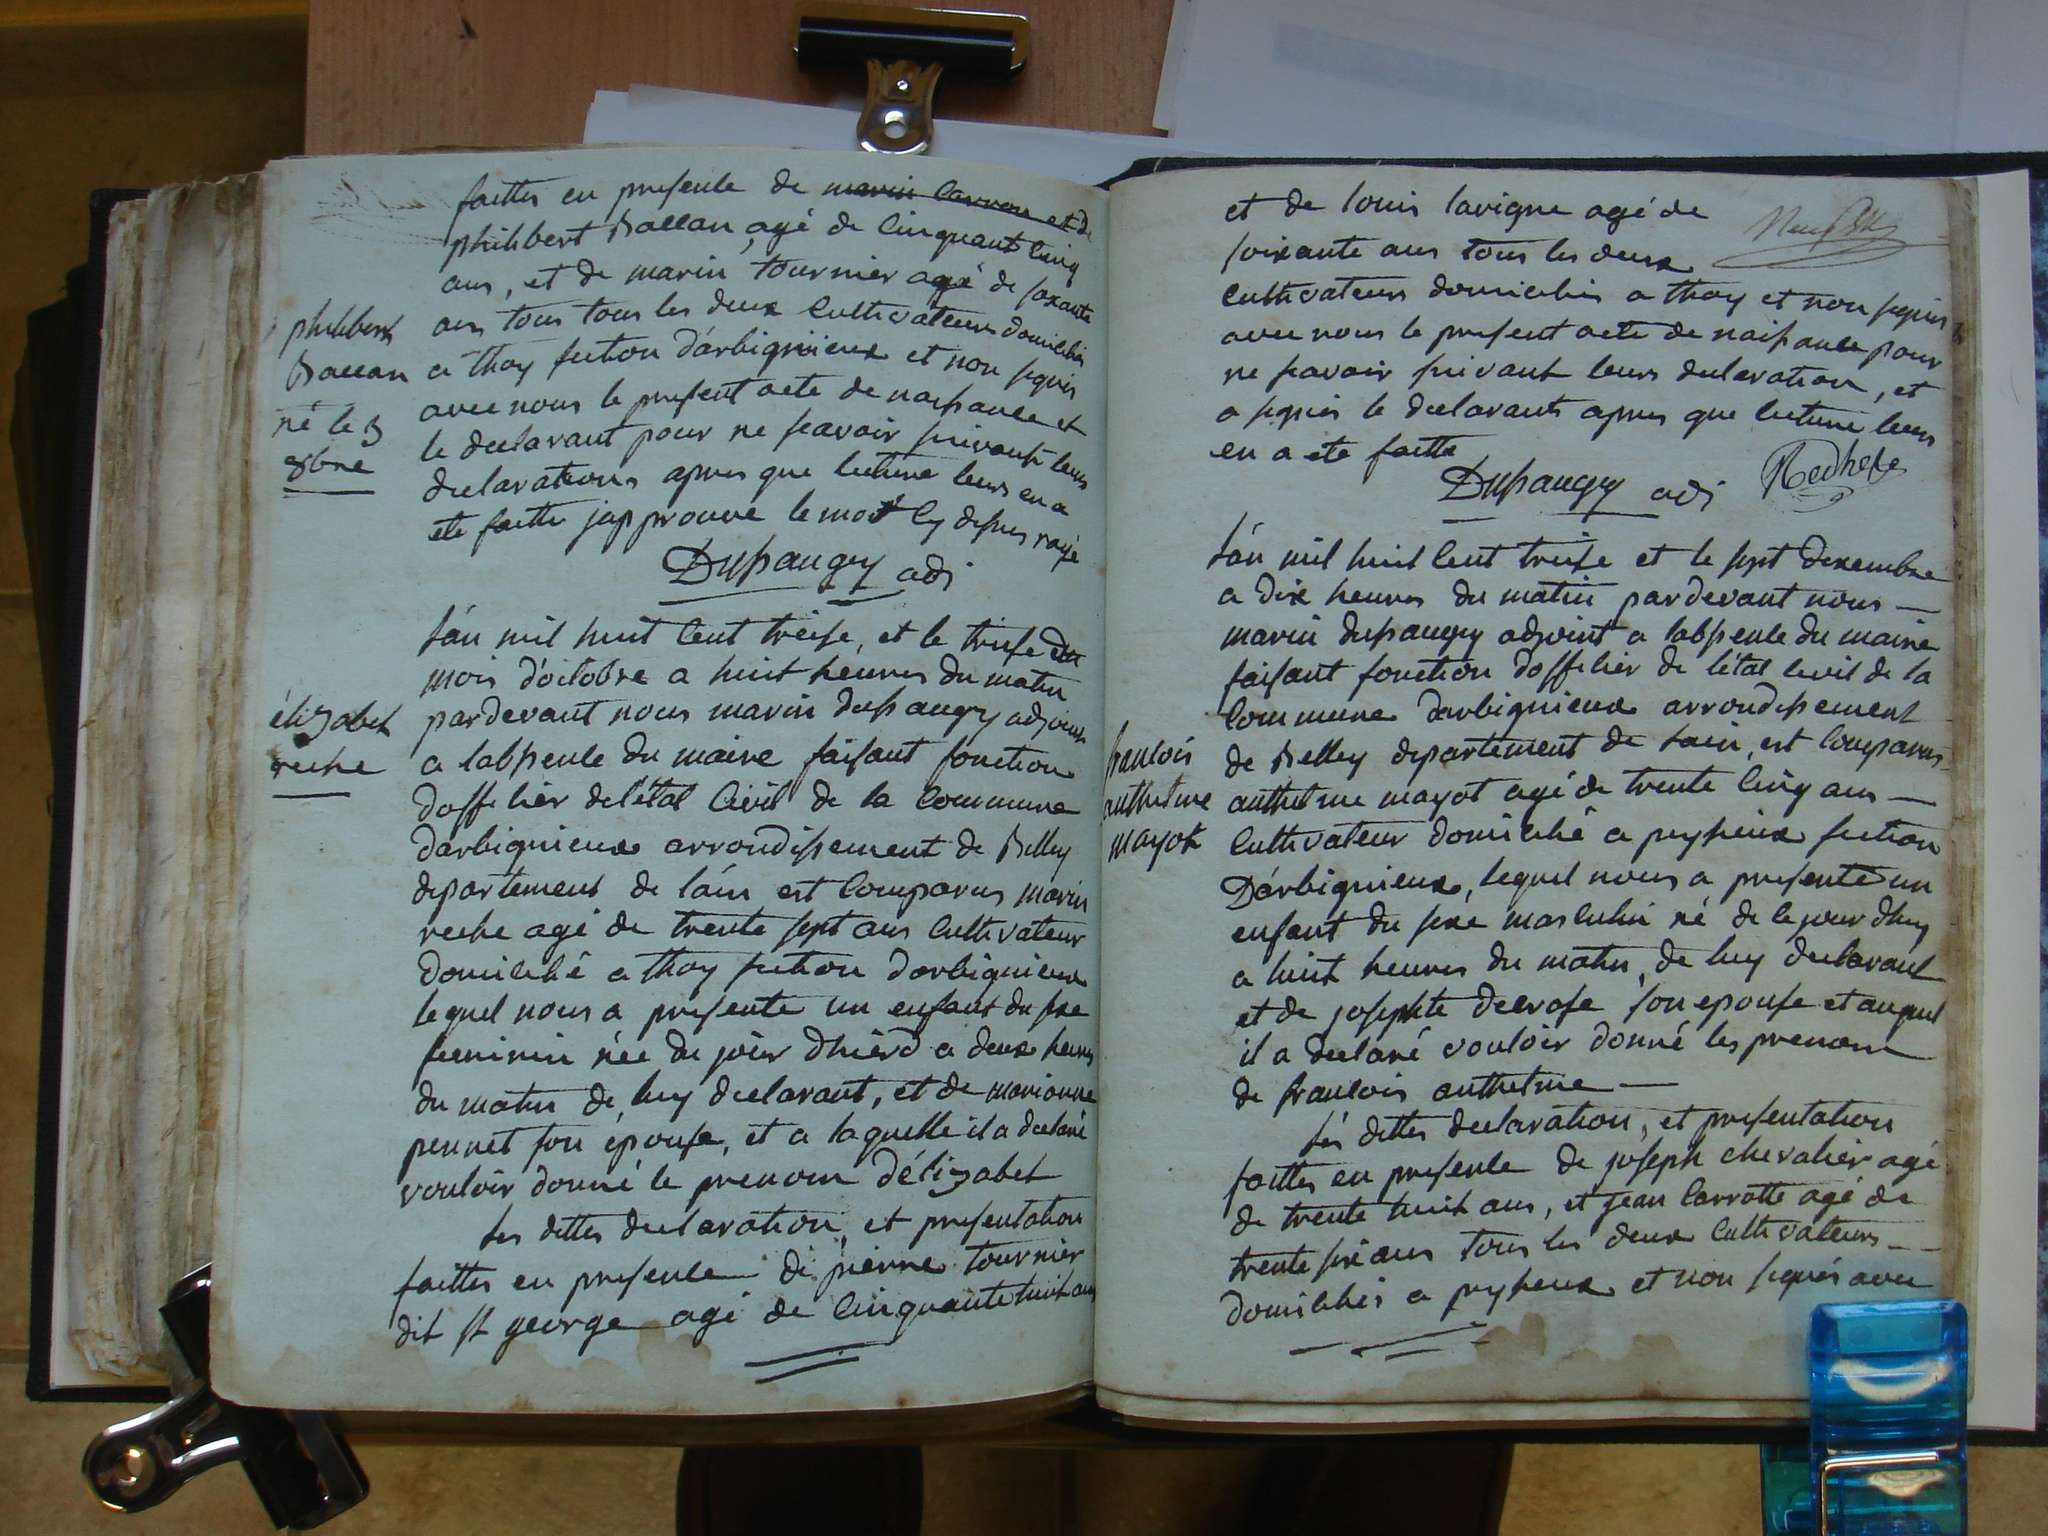 faittes en presence de marin carron et de
philibert Baccan agé de cinquante cinq
ans, et de marin tournier agé de soxante
ans tous tous les deux cultivateurs domiciliés
a thoy section d'arbignieux et non signés
avec nous le present acte de naissance et
le declarant pour ne scavoir suivant leurs
declarations apres que lecture leurs en a
eté faitte japprouve le mot cy dessus rayé
Dupaugey adj
philibert
Baccan
né le 3
8bre
l'an mil huit cent treise, et le treise du
mois d'octobre a huit heures du matin
pardevant nous marin dupaugey adjoint
a labsence du maire faisant fonction
d'officier de l'état civil de la commune
darbignieux arrondissement de Belley
departement de l'ain est comparus marin
reche agé de trente sept ans cultivateur
domicilié a thoy section darbignieux
lequel nous a presente un enfant du sexe
feminin née du jour dhierd a deux heures
du matin de luy declarant, et de marianne
pennet son épouse, et a laquelle il a declaré
vouloir donné le prenom d'élizabet
élizabet
reche
les dittes declaration, et presentation
faittes en presence de pierre tournier
dit st george agé de cinquante huit ans
et de louis lavigne agé de
soixante ans tous les deux
cultivateurs domiciliés a thoy et non signés
avec nous le present acte de naissance pour
ne scavoir suivant leurs declaration, et
a signés le declarants apres que lecture leurs
en a eté faitte
Dupaugey adj Reche
l'an mil huit cent treise et le sept decembre
a dix heures du matin pardevant nous
marin dupaugey adjoint a labsence du maire
faisant fonction d'officier de l'état civil de la
commune darbignieux arrondissement
de Belley departement de lain, est comparus
anthelme mayot agé de trente cinq ans
cultivateur domicilié a peyzieux section
D'arbignieux, lequel nous a presenté un
enfant du sexe masculin né de ce jour d'huy
a huit heures du matin, de luy declarant
et de josephte decrose son epouse et auquel
il a declaré vouloir donné les prenom
de francois anthelme
francois
anthelme
mayot
les dittes declaration, et presentation
faittes en presence de joseph chevalier agé
de trente huit ans, et jean carrotte agé de
trente six ans tous les deux cultivateurs
domiciliés a peyzieux et non signés avec